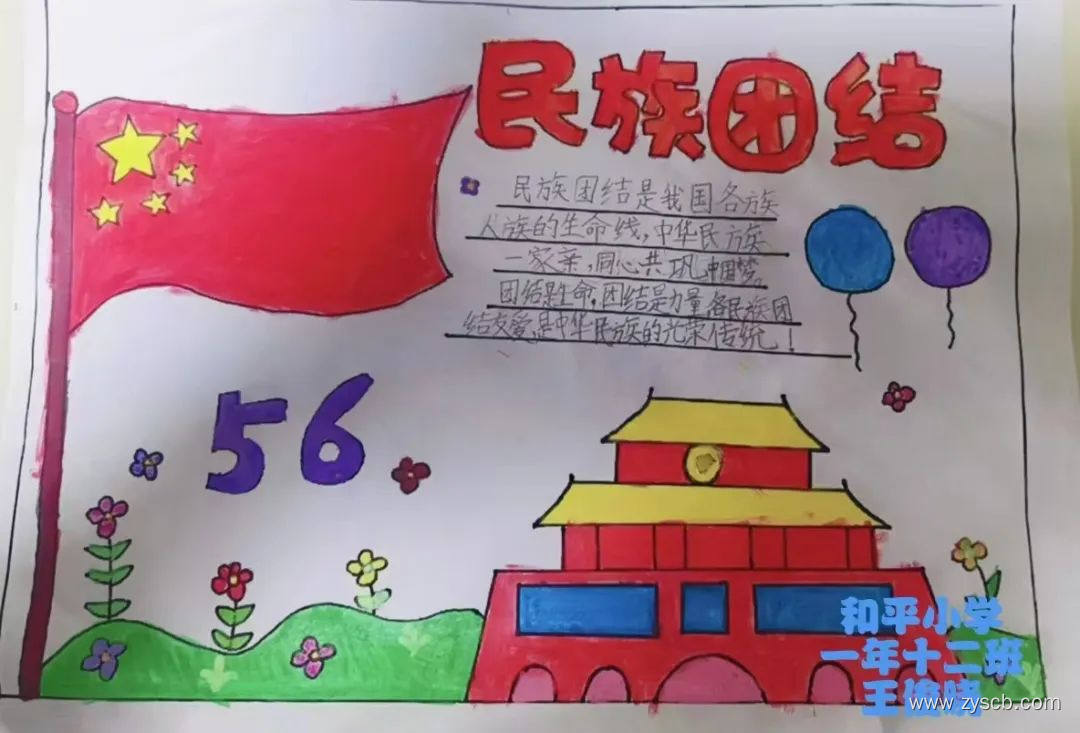 民族团结
民族团结是我国各族
人族的生命线,中华民族
一家亲,同心共巩中国梦。
团结是生命,团结是力量,各民族团
结友爱,是中华民族的光荣传统!
56
和平小学
一年十二班
王
www.zyscb.com